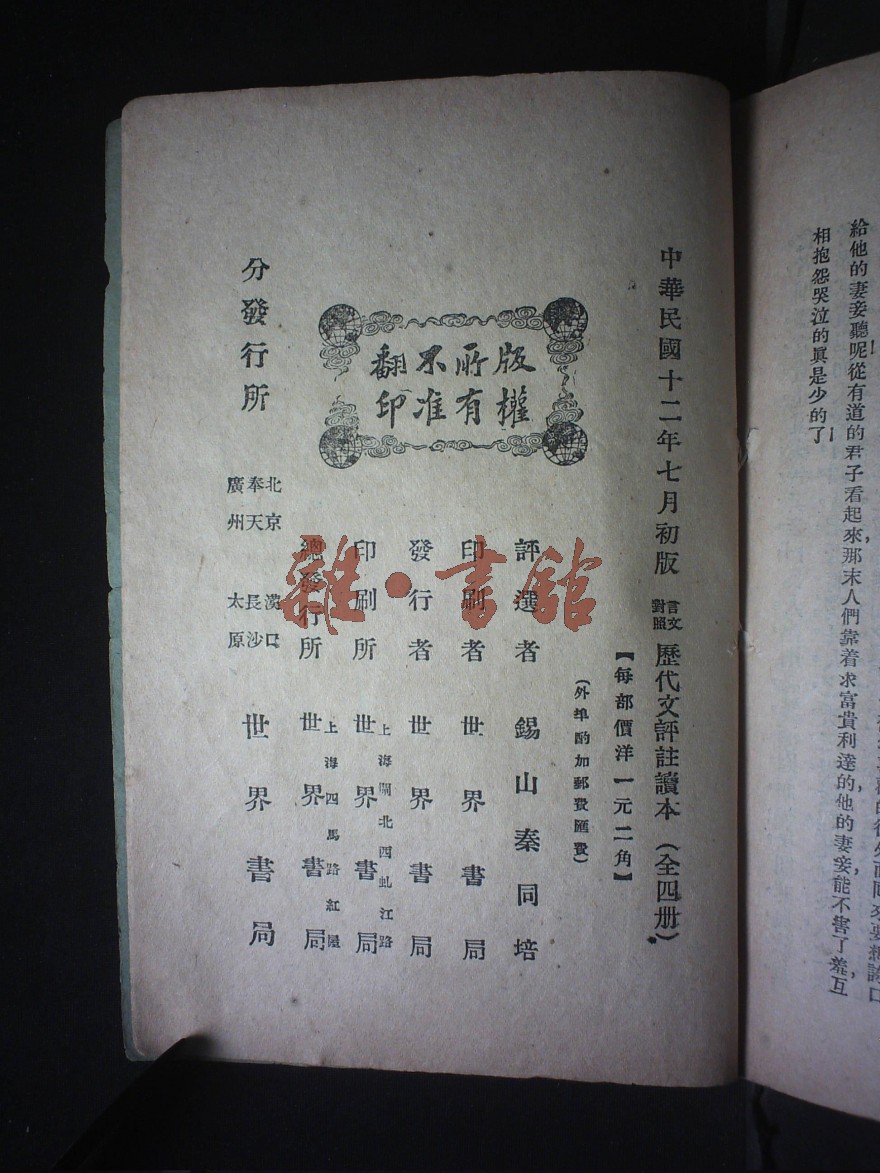 給他的妻妾聽呢從有道的君子看起來那末人們靠着求富貴利達的他的妻妾能不害了羞互
相抱怨哭泣的眞是少的了
中華民國十二年七月初版
言文對照 歷代文評註讀本（全四册）
【每部價洋一元二角】
（外埠酌加郵費匯費）
版權所有不准翻印
評選者 錫山秦同培
印刷者 世界書局
發行者 世界書局
上海閘北西虬江路
印刷所 世界書局
上海四馬路紅屋
總發行所 世界書局
分發行所
北京 漢口
奉天 長沙
廣州 太原
世界書局
雜·書館